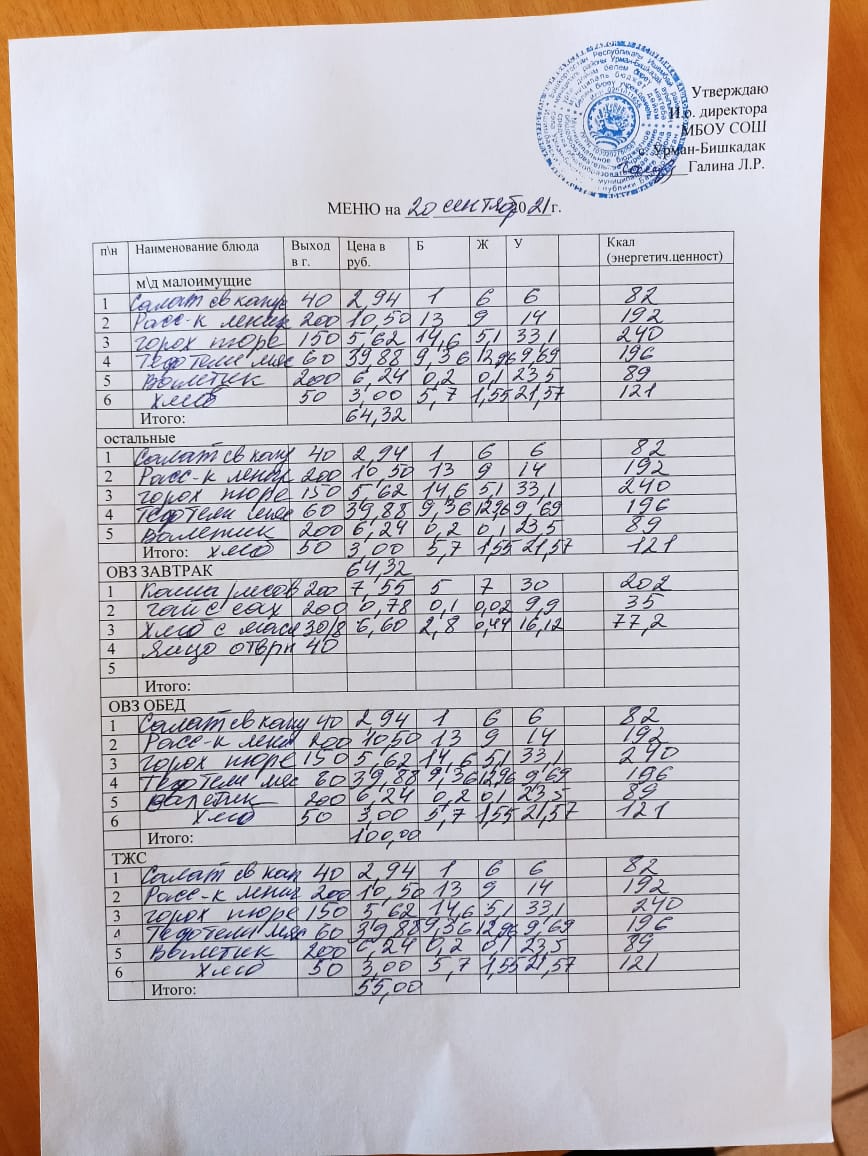 Утверждаю
И.о. директора
МБОУ СОШ
с. Урман-Бишкадак
Галина Л.Р.
МЕНЮ на 20 сентябр 2021г.
п\н Наименование блюда Выход в г. Цена в руб. Б Ж У Ккал (энергетич.ценност)
м\д малоимущие
1 Салат св капус 40 2,94 1 6 6 82
2 Расс-к ленин 200 10,50 13 9 14 192
3 горох пюре 150 5,62 14,6 5,1 33,1 240
4 Тефтели мяс 60 39,88 9,36 12,96 9,69 196
5 200 6,24 0,2 0,1 23,5 89
6 хлеб 50 3,00 5,7 1,55 21,57 121
Итого: 64,32
остальные
1 Салат св капу 40 2,94 1 6 6 82
2 Расс-к ленин 200 10,50 13 9 14 192
3 горох пюре 150 5,62 14,6 5,1 33,1 240
4 Тефтели 60 39,88 9,36 12,96 9,69 196
5 200 6,24 0,2 0,1 23,5 89
Итого: хлеб 50 3,00 5,7 1,55 21,57 121
ОВЗ ЗАВТРАК 64,32
1 Каша 200 7,55 5 7 30 202
2 чай с сах 200 0,78 0,1 0,02 9,9 35
3 Хлеб с масл 30/8 6,60 2,8 0,44 16,12 77,2
4 яйцо отврн 40
5
Итого:
ОВЗ ОБЕД
1 Салат св капу 40 2,94 1 6 6 82
2 Расс-к ленин 200 10,50 13 9 14 192
3 горох пюре 150 5,62 14,6 5,1 33,1 240
4 Тефтели мяс 60 39,88 9,36 12,96 9,69 196
5 200 6,24 0,2 0,1 23,5 89
6 Хлеб 50 3,00 5,7 1,55 21,57 121
Итого: 100,00
ТЖС
1 Салат св кап 40 2,94 1 6 6 82
2 Расс-к ленин 200 10,50 13 9 14 192
3 горох пюре 150 5,62 14,6 5,1 33,1 240
4 Тефтели мяс 60 39,88 9,36 12,96 9,69 196
5 200 6,24 0,2 0,1 23,5 89
6 хлеб 50 3,00 5,7 1,55 21,57 121
Итого: 55,00